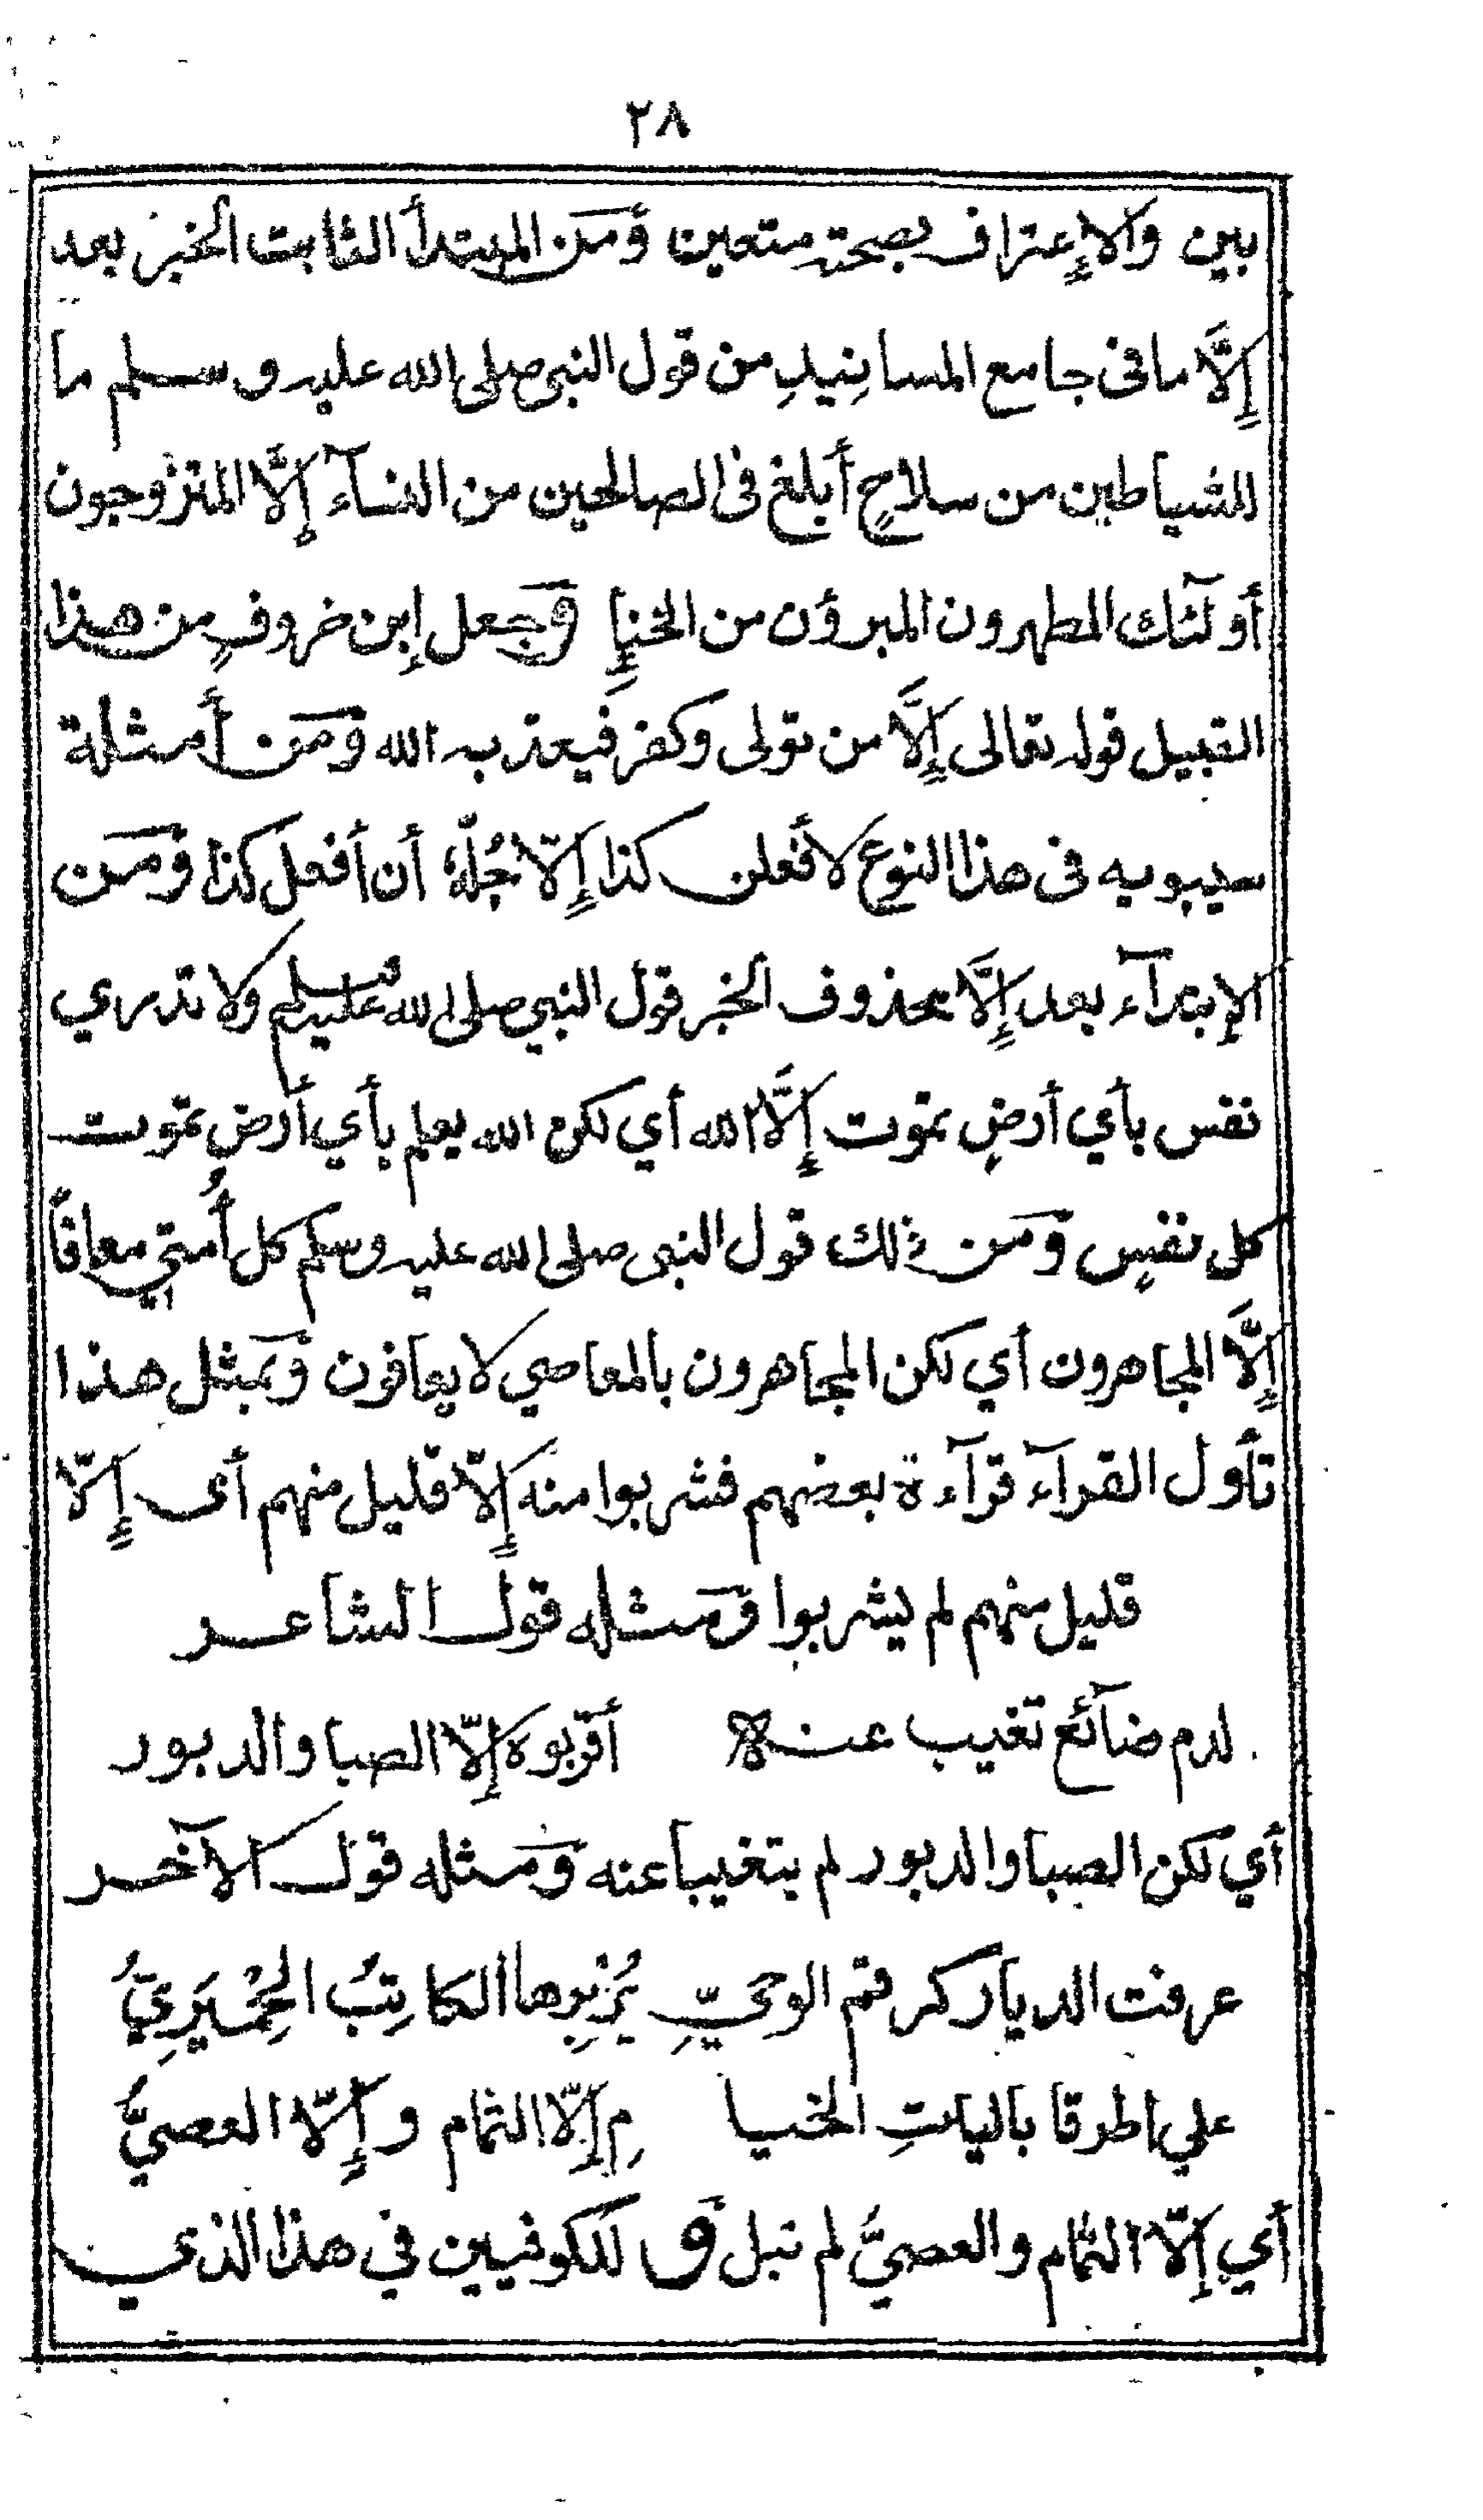 ٢٨
بين والإعتراف بصحته متعين ومن المبتدأ الثابت الخبر بعد
إلَّا ما في جامع المسانِيدِ من قول النبي صلى الله عليه وسلم ما
للشياطين من سلاحٍ أبلغ في الصالحين من النسآء إلَّا المتزوجون
أولئك المطهرون المبرؤن من الخنإِ وجعل إبن خروفٍ من هذا
القبيل قوله تعالى إلَّا من تولى وكفر فيعذبه الله ومن أمثلة
سيبويه في هذا النوع لأفعلن كذا إلّا حُلَّهُ أن أفعل كذا ومن
الإبتدآء بعد إلَّا محذوف الخبر قول النبي صلى الله عليه وسلم ولا تدري
نفس بأي أرضٍ تموت إلَّا الله أي لكن الله يعلم بأي أرضٍ تموت
كل نفسٍ ومن ذلك قول النبي صلى الله عليه وسلم كل أُمتي معافاً
إلَّا المجاهرون أي لكن المجاهرون بالمعاصي لا يعافون وبمثل هذا
تأول القرآء قرآءة بعضهم فشربوا منه إلّا قليل منهم أي إلّا
قليل منهم لم يشربوا ومثله قول الشاعر
لدم ضآئع تغيب عنه أقربوه إلّا الصبا والدبور
أي لكن الصبا والدبور لم يتغيبا عنه ومثله قول الآخر
عرفت الديار كرقم الوحيِّ يُزْبِرها الكاتِبُ الحِمْيَرِيُّ
علي اطرقا بالياتِ الخيا مِ إلّا الثمام وإلّا العصيُّ
أي إلّا الثمام والعصيُّ لم تبل وللكوفيين في هذا الذي